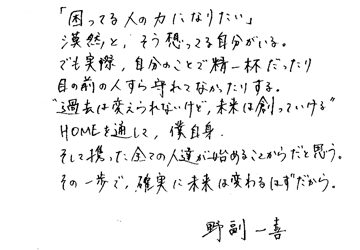 「困ってる人の力になりたい」
漠然と、そう想ってる自分がいる。
でも実際、自分のことで精一杯だったり
目の前の人すら守れてなかったりする。
"過去は変えられないけど、未来は創っていける"
HOMEを通して、僕自身、
そして携った全ての人達が始めることからだと思う。
その一歩で、確実に未来は変わるはずだから。
野副 一喜